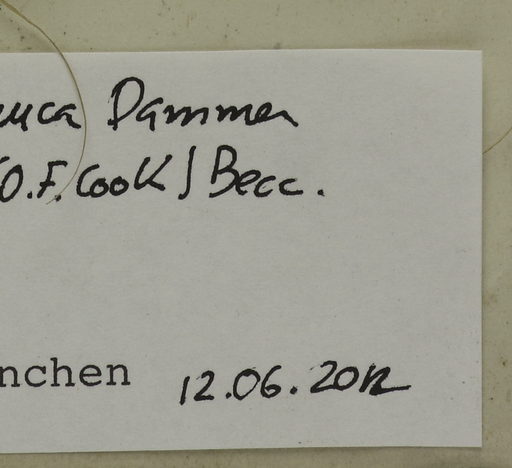 euca Dammer
(O.F. Cook) Becc.
nchen 12.06.2012